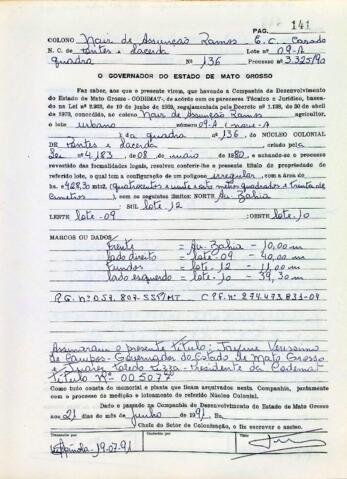 PAG. 141
COLONO Nair de Assunção Ramos E. C. Casado
N. C. de Pontes e Lacerda Lote nº 09-A
quadra Nº 136 Processo nº 3.325/90
O GOVERNADOR DO ESTADO DE MATO GROSSO
Faz saber, aos que a presente virem, que havendo a Companhia de Desenvolvimento
do Estado de Mato Grosso - CODEMAT-, de acôrdo com os pareceres Técnico e Jurídico, basea-
do na Lei nº
concedido, ao colono Nair de Assunção Ramos agricultor,
o lote urbano número 09-A
da quadra nº 136, do NÚCLEO COLONIAL
DE Pontes e Lacerda, criado pela
Lei nº 4.183 de 08 de maio de 1980, e achando-se o processo
revestido das formalidades legais, resolveu conferir-lhe o presente título de propriedade do
referido lote, o qual tem a configuração de um polígono irregular, com a área de
428,30 mts2, (quatrocentos e vinte e oito metros quadrados e trinta de
cimetros), com os seguintes limites: NORTE Av. Bahia
SUL lote-12
LESTE lote-09 :OESTE lote-10
MARCOS OU DADOS:
Frente = Av. Bahia - 10,00 m
lado direito = lote-09 - 40,00 m
fundos = lote-12 - 11,00 m
lado esquerdo = lote-10 - 39,30 m
R.G. Nº 057.807-SSP/MT C.P.F. Nº 274.473.831-04
Assinaram o presente título: Jayme Verissimo
de Campos - Governador do Estado de Mato Grosso
e Juarez Toledo Pizza - Presidente da Codemat
Título Nº 005077
Como tudo consta do memorial e planta que ficam arquivados nesta Companhia, juntamente
com o processo de medição e loteamento do referido Núcleo Colonial.
Dado e passado na Companhia de Desenvolvimento do Estado de Mato Grosso
aos 21 dias do mês de junho de 1991. Eu
Chefe do Setor de Colonização, o fiz escrever e assino.
19.07.91